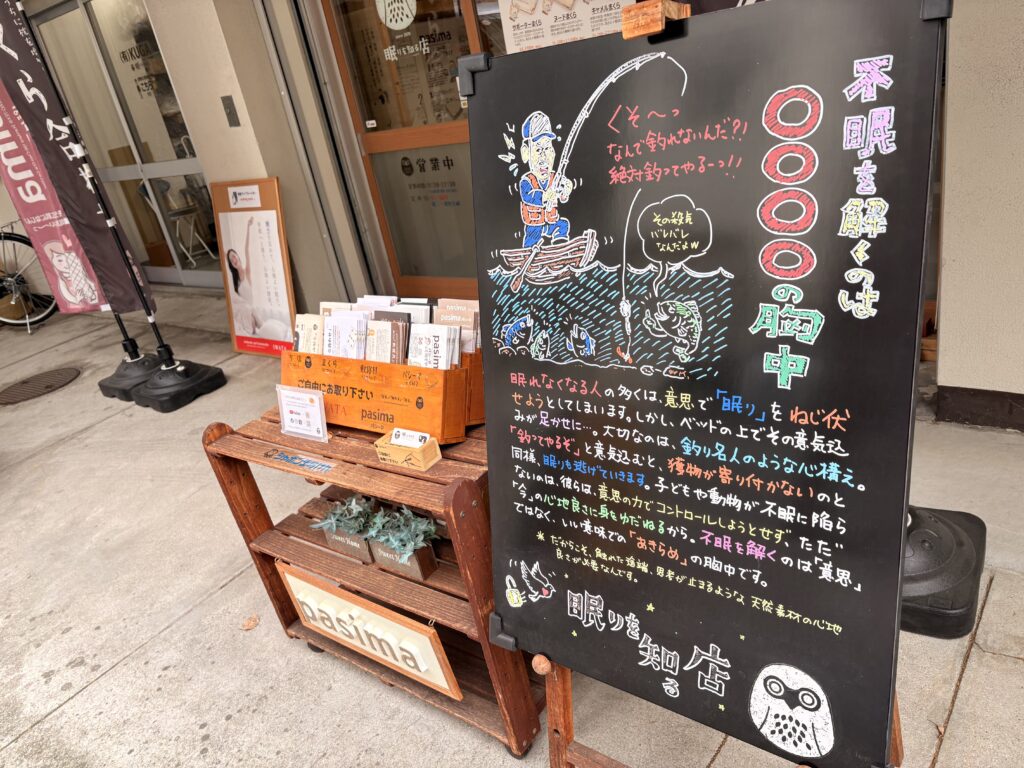 不眠を解くのは
〇〇〇〇の胸中
くそ〜っ
なんで釣れないんだ?!
絶対釣ってやるーっ!!
その殺気
バレバレ
なんだよw
眠れなくなる人の多くは、意思で「眠り」をねじ伏
せようとしてしまいます。しかし、ベッドの上でその意気込
みが足かせに…。大切なのは、釣り名人のような心構え。
「釣ってやるぞ」と意気込むと、獲物が寄り付かないのと
同様、眠りも逃げていきます。子どもや動物が不眠に陥ら
ないのは、彼らは、意思の力でコントロールしようとせず、ただ
「今」の心地良さに身をゆだねるから。不眠を解くのは「意思」
ではなく、いい意味での「あきらめ」の胸中です。
*だからこそ、触れた途端、思考が止まるような天然素材の心地
良さが必要なんです。
眠りを知る店
サポーターまくら
ヌードまくら
キャメルまくら
眠りを知る店
営業中
まくら
ご自由にお取り下さい
pasima
パシーマ
pasima
pasima
Sweet Home
pasima